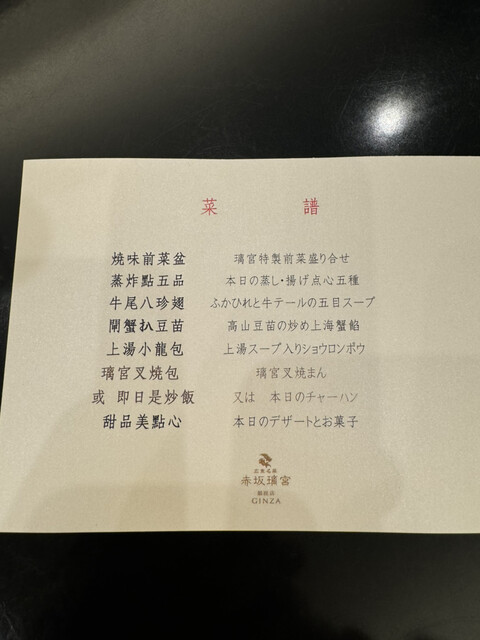 菜譜
燒味前菜盆 璃宮特製前菜盛り合せ
蒸炸點五品 本日の蒸し・揚げ点心五種
牛尾八珍翅 ふかひれと牛テールの五目スープ
閘蟹扒豆苗 高山豆苗の炒め上海蟹餡
上湯小龍包 上湯スープ入りショウロンポウ
璃宮叉燒包 璃宮叉焼まん
或 即日是炒飯 又は 本日のチャーハン
甜品美點心 本日のデザートとお菓子
広東名菜
赤坂璃宮
銀座店
GINZA